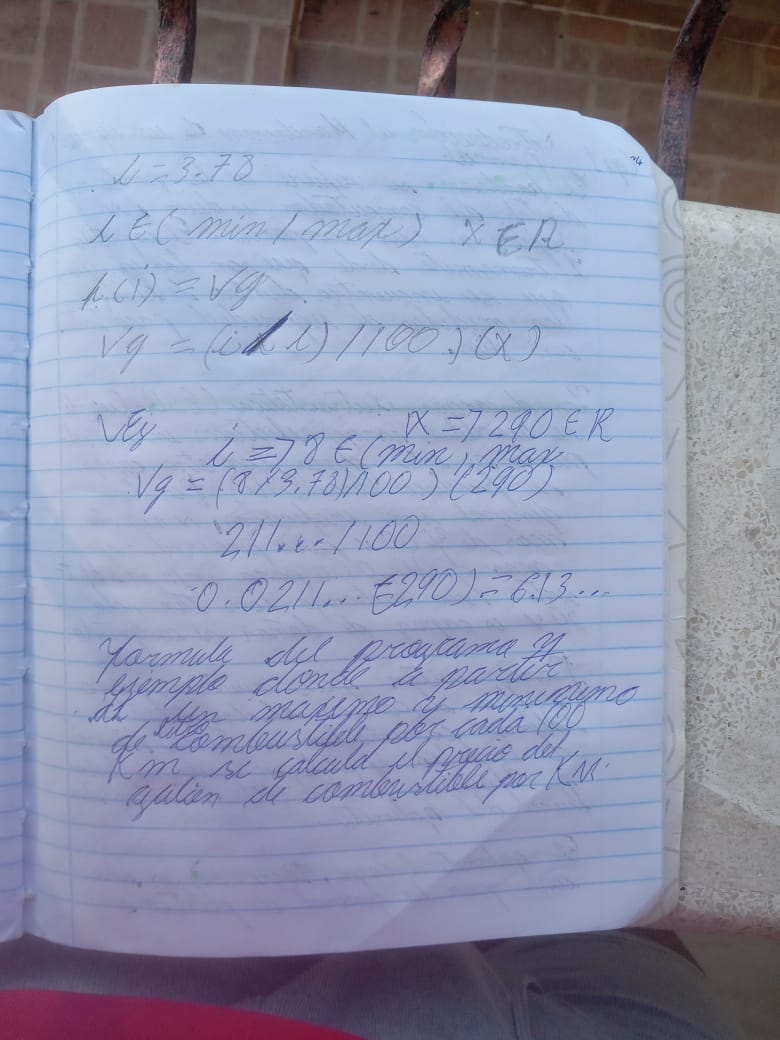 L = 3.78
i ∈ ( min / max ) X ∈ R
L(i) = Vg
Vg = (i / L) / 100 ) (X)
Ej i X => 290 ∈ R
i => 8 ∈ (min, max
Vg = (8 / 3.78) / 100 ) (290)
2.11... / 100
0.0211... (290) = 6.13...
formula del programa y
ejemplo donde a partir
de un maximo y minimo
de combustible por cada 100
Km se calcula el precio del
galion de combustible por KM.